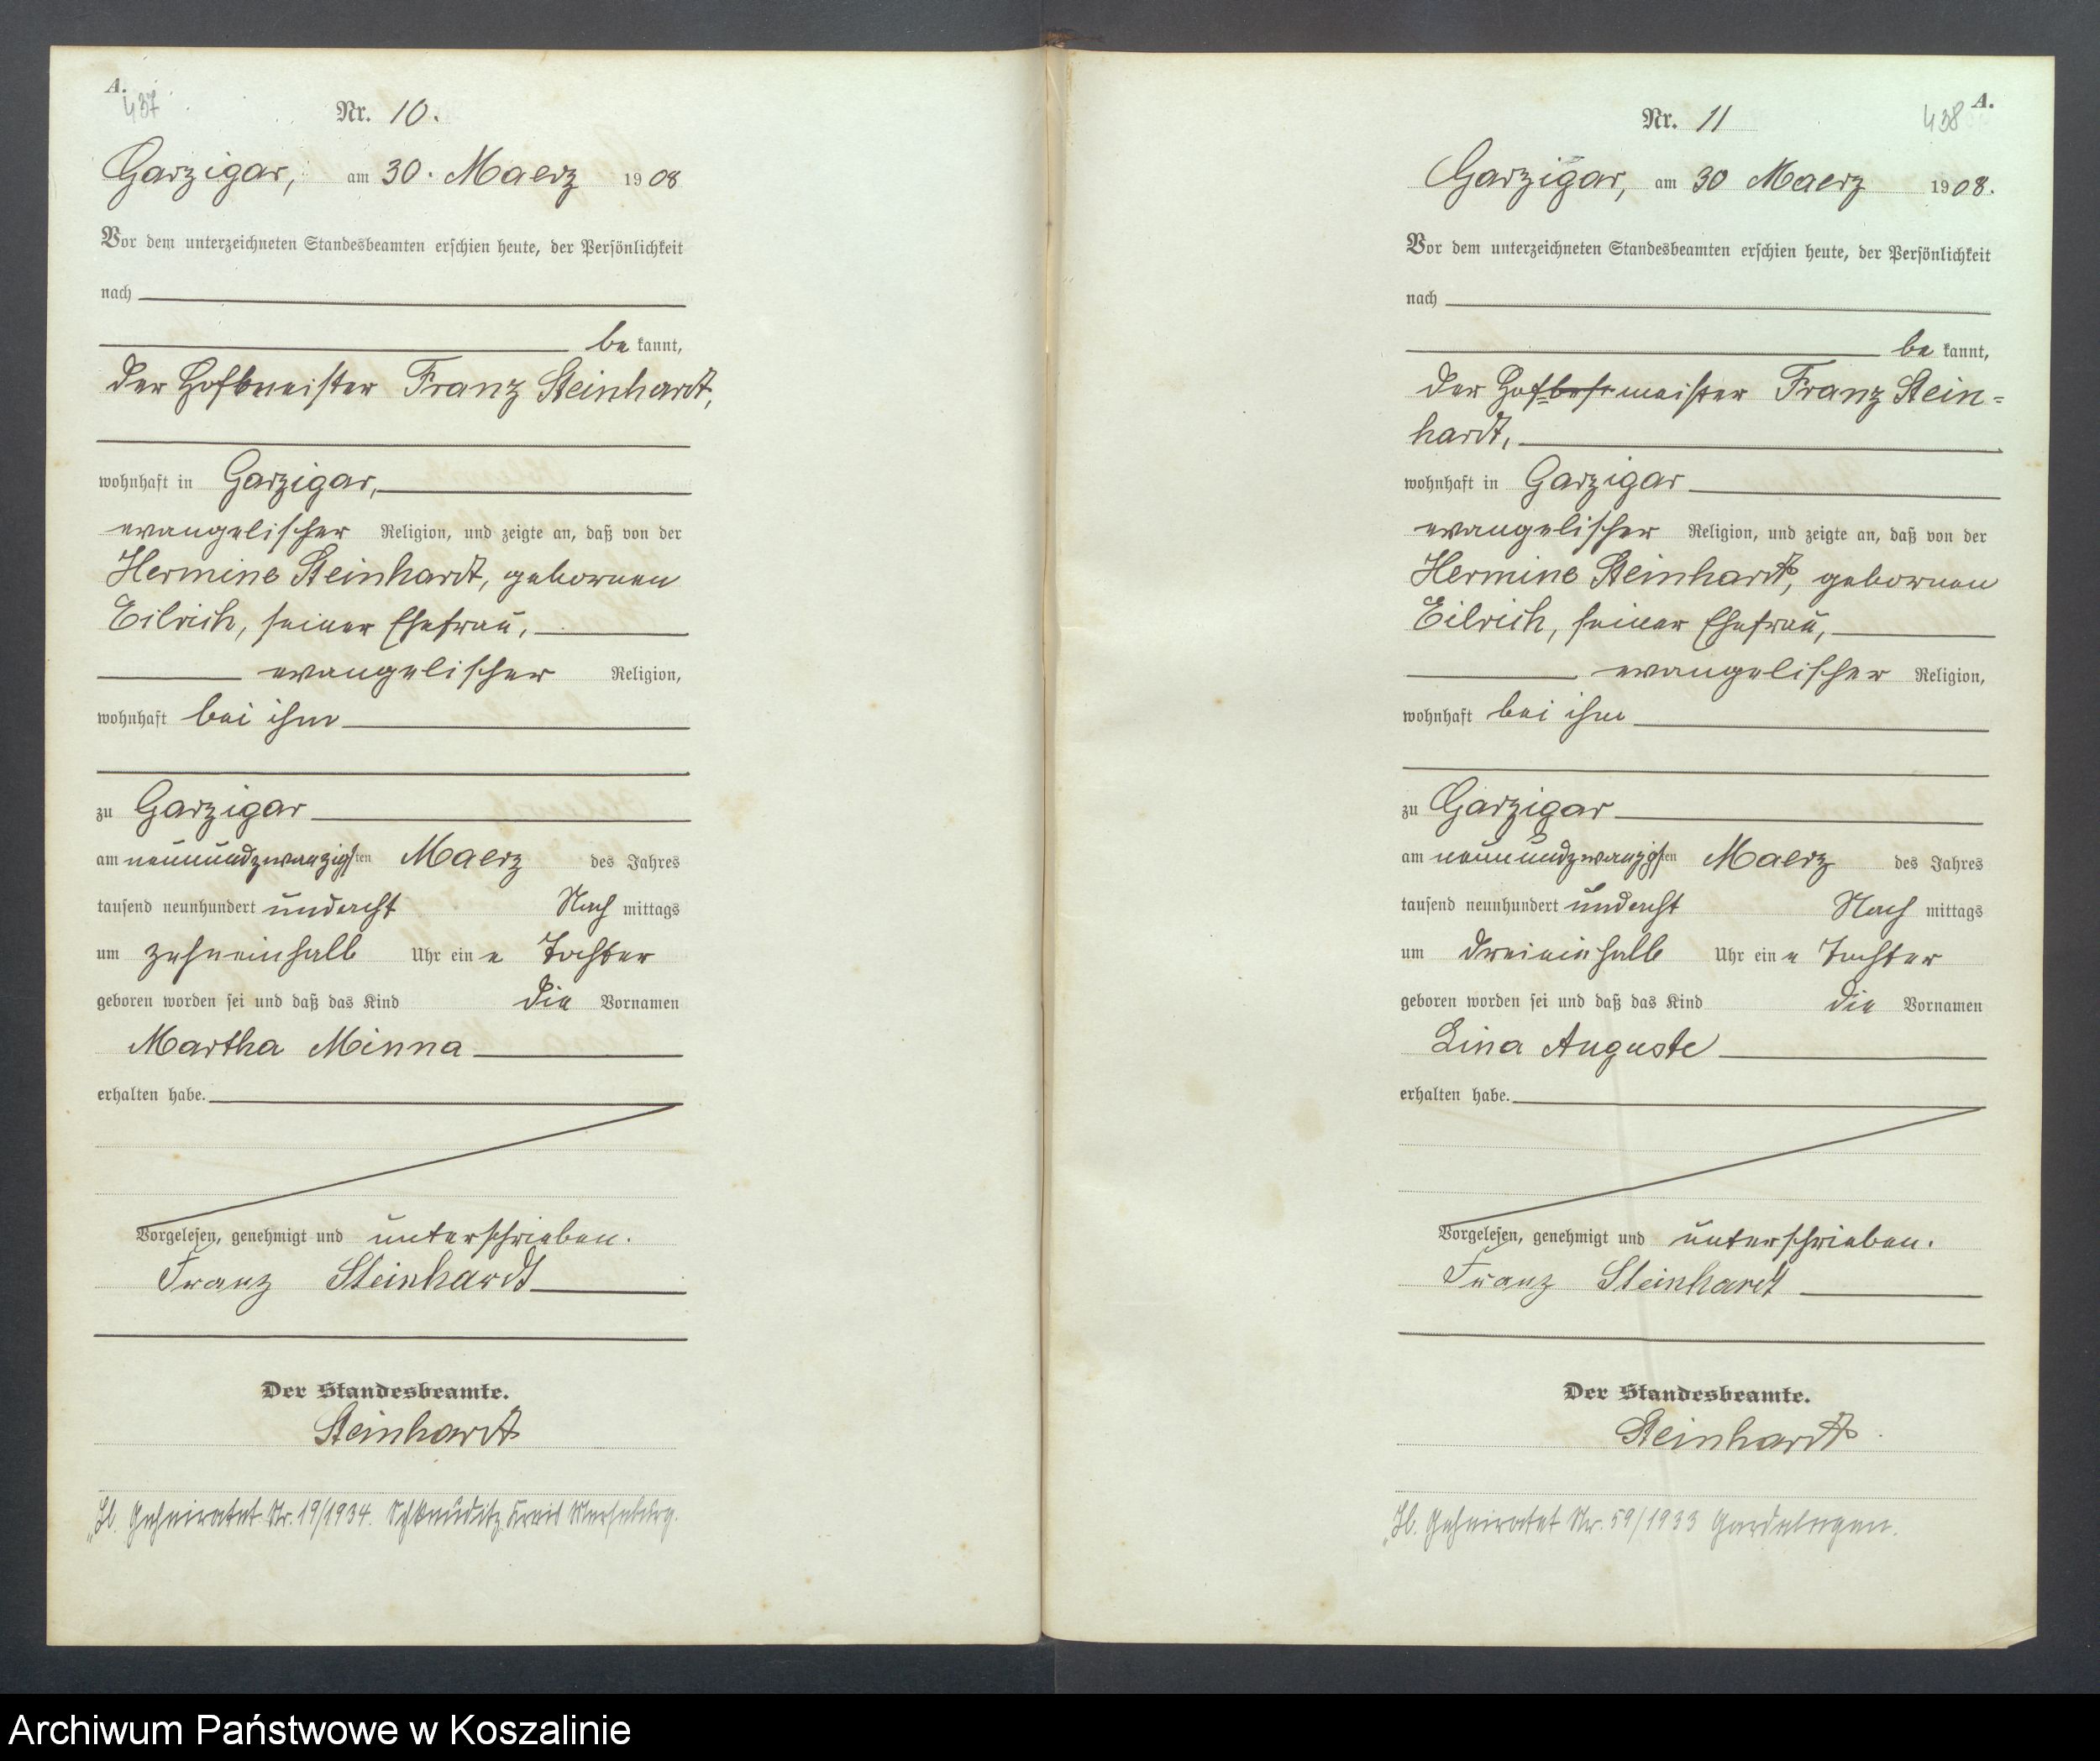 A.
437
Nr. 10.
Garzigar, am 30. Maerz 1908
Vor dem unterzeichneten Standesbeamten erschien heute, der Persönlichkeit
nach
be kannt,
der Hofmeister Franz Steinhardt,
wohnhaft in Garzigar,
evangelischer Religion, und zeigte an, daß von der
Hermine Steinhardt, gebornen
Eilrich, seiner Ehefrau,
evangelischer Religion,
wohnhaft bei ihm
zu Garzigar
am neunundzwanzigsten Maerz des Jahres
tausend neunhundert undacht Nach mittags
um zehneinhalb Uhr ein e Tochter
geboren worden sei und daß das Kind die Vornamen
Martha Minna
erhalten habe.
Vorgelesen, genehmigt und unterschrieben.
Franz Steinhardt
Der Standesbeamte.
Steinhardt
Geheiratet Nr. 19/1934. Schkeuditz Kreis Merseburg.
A.
438
Nr. 11
Garzigar, am 30 Maerz 1908.
Vor dem unterzeichneten Standesbeamten erschien heute, der Persönlichkeit
nach
be kannt,
der Hofmeister Franz Stein=
hardt,
wohnhaft in Garzigar
evangelischer Religion, und zeigte an, daß von der
Hermine Steinhardt, gebornen
Eilrich, seiner Ehefrau,
evangelischer Religion,
wohnhaft bei ihm
zu Garzigar
am neunundzwanzigsten Maerz des Jahres
tausend neunhundert undacht Nach mittags
um dreieinhalb Uhr ein e Tochter
geboren worden sei und daß das Kind die Vornamen
Lina Auguste
erhalten habe.
Vorgelesen, genehmigt und unterschrieben.
Franz Steinhardt
Der Standesbeamte.
Steinhardt
Geheiratet Nr. 59/1933 Gardelegen.
Archiwum Państwowe w Koszalinie